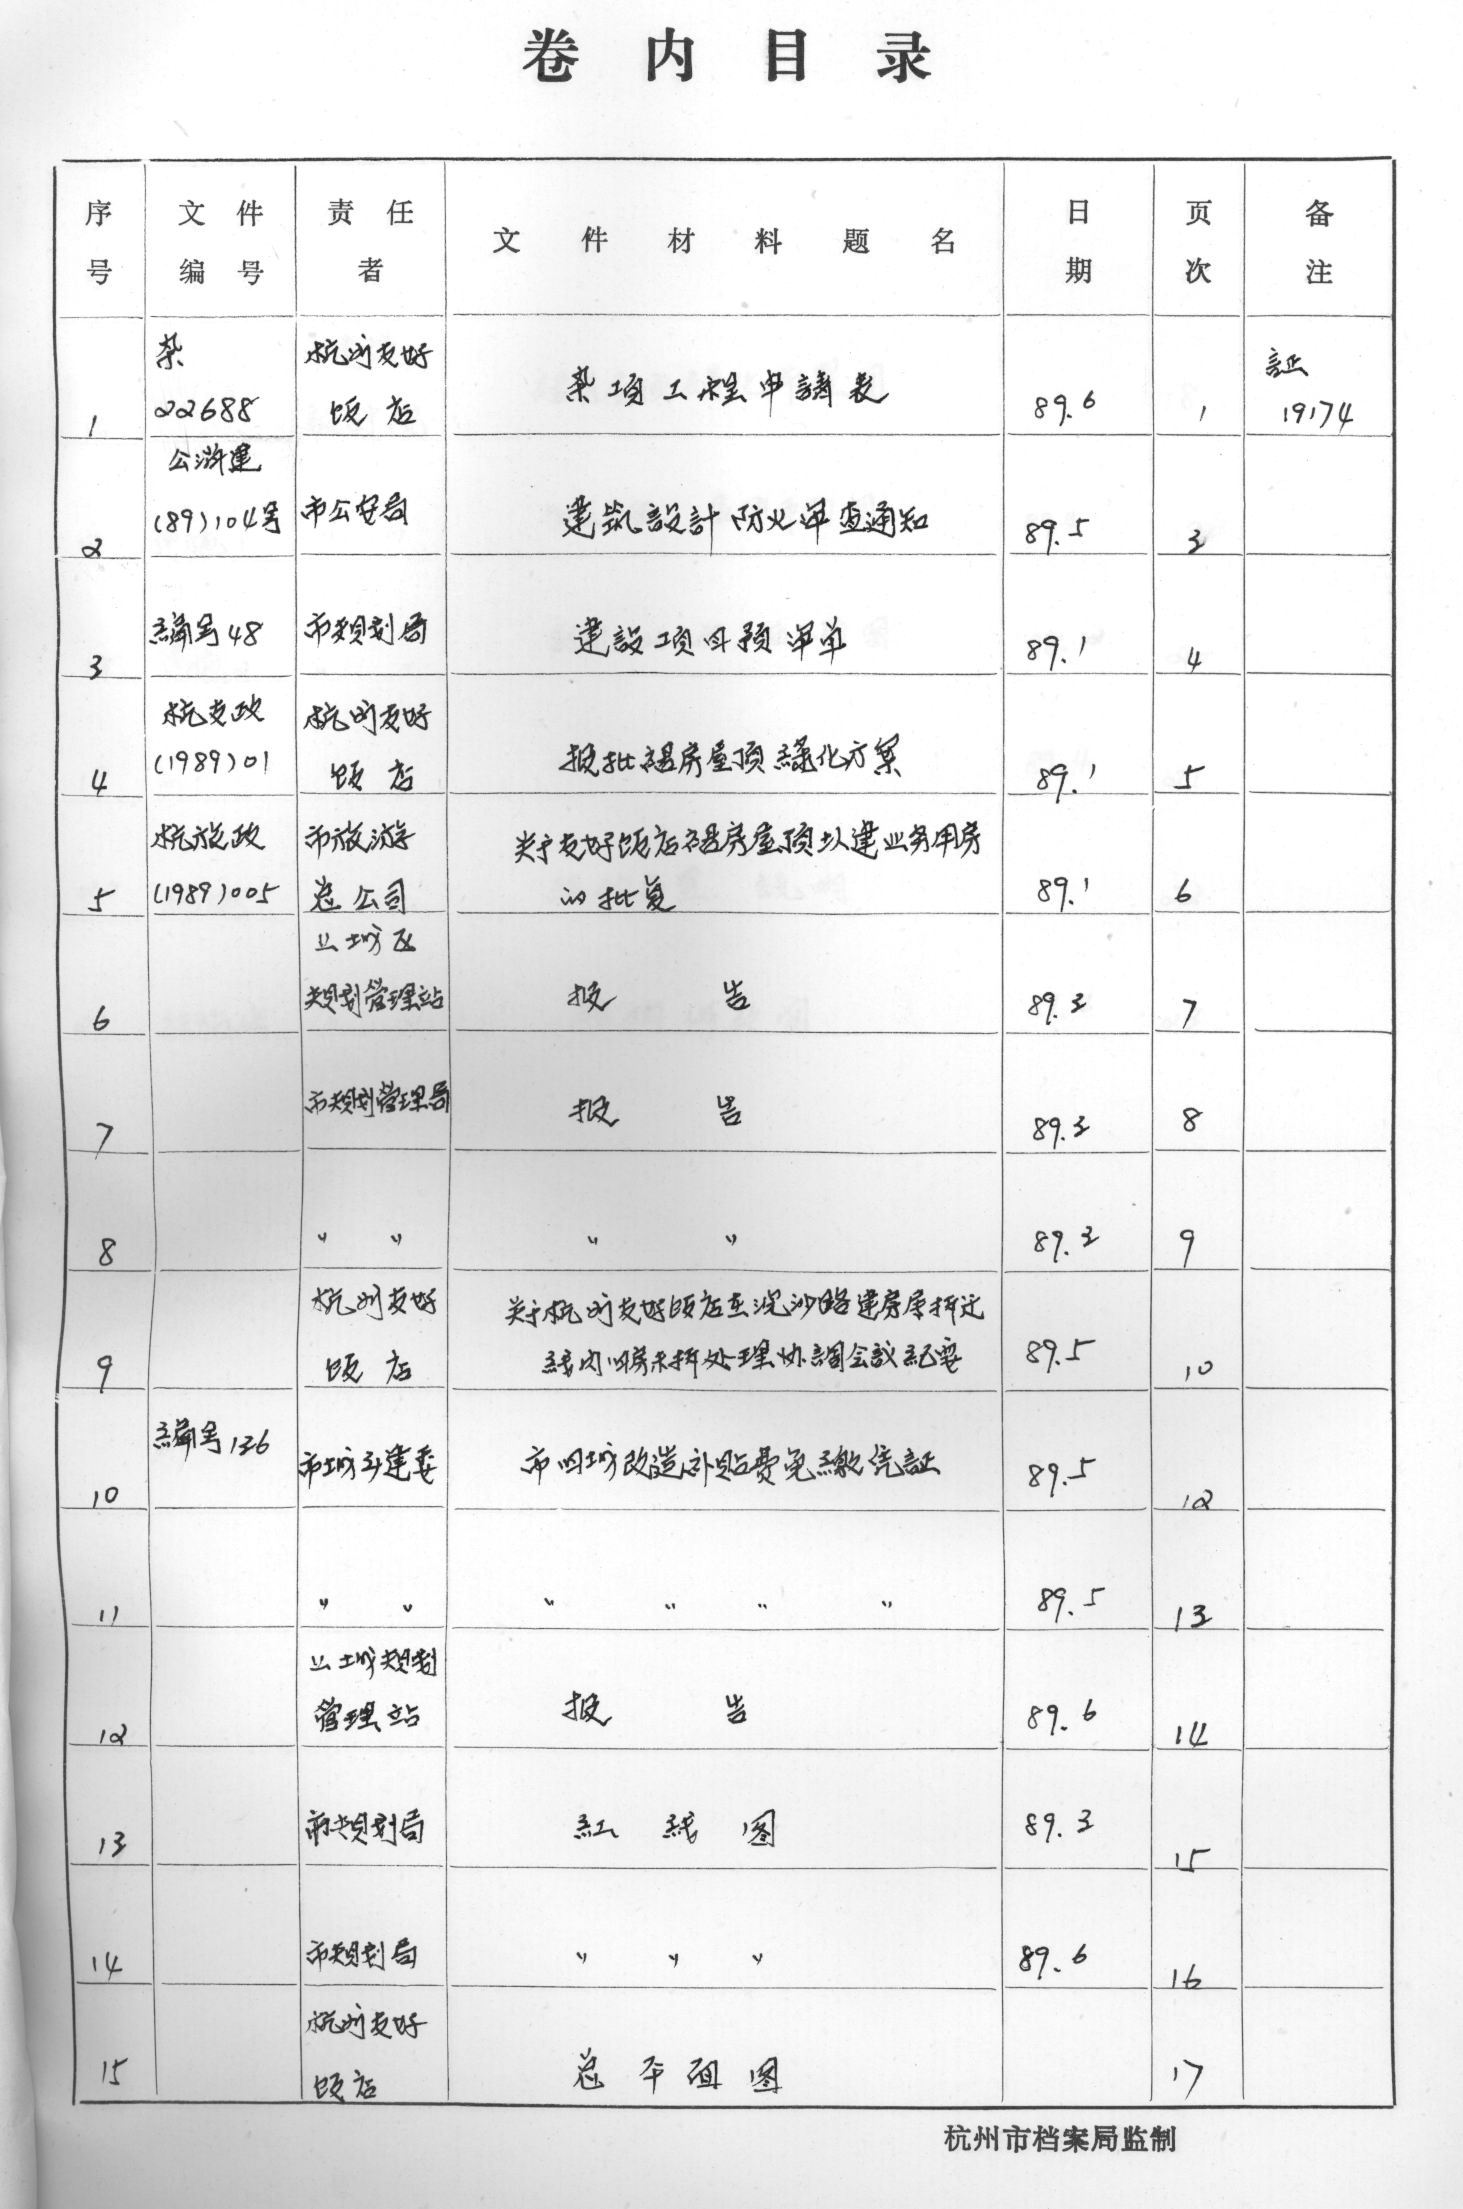 卷内目录
序号 文件编号 责任者 文件材料题名 日期 页次 备注
1 杂22688 杭州友好饭店 杂项工程申請表 89.6 1 証19174
2 公消建(89)104号 市公安局 建筑設計防火审查通知 89.5 3
3 編号48 市規划局 建設項目預审单 89.1 4
4 杭友政(1989)01 杭州友好饭店 报批裙房屋顶綠化方案 89.1 5
5 杭旅政(1989)005 市旅游总公司 关于友好饭店裙房屋顶扩建业务用房
的批复 89.1 6
6 上城区規划管理站 报告 89.3 7
7 市規划管理局 报告 89.3 8
8 〃 〃 〃 〃 89.3 9
9 杭州友好饭店 关于杭州友好饭店在浣沙路建房屋拆迁
线内旧房未拆处理协調会議紀要 89.5 10
10 編号136 市城乡建委 市旧城改造补贴費免繳凭証 89.5 12
11 〃 〃 〃 〃 〃 〃 89.5 13
12 上城規划管理站 报告 89.6 14
13 市規划局 紅线图 89.3 15
14 市規划局 〃 〃 〃 89.6 16
15 杭州友好饭店 总平面图 17
杭州市档案局监制